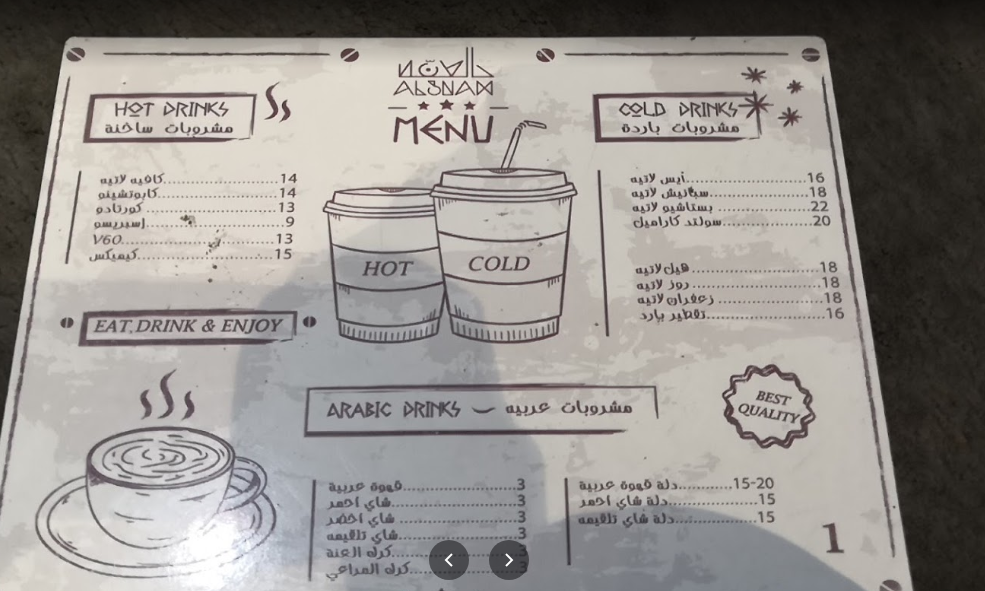 ALSNAM
MENU
HOT DRINKS
مشروبات ساخنة
كافيه لاتيه 14
كابوتشينو 14
كورتادو 13
إسبريسو 9
V60 13
كيمكس 15
HOT
COLD
COLD DRINKS
مشروبات باردة
آيس لاتيه 16
سبانيش لاتيه 18
بستاشيو لاتيه 22
سولتد كاراميل 20
هيل لاتيه 18
روز لاتيه 18
زعفران لاتيه 18
تقطير بارد 16
EAT, DRINK & ENJOY
BEST
QUALITY
ARABIC DRINKS - مشروبات عربيه
قهوة عربية 3
شاي احمر 3
شاي اخضر 3
شاي تلقيمه 3
كرك العنة
كرك المراعي
دلة قهوة عربية 15-20
دلة شاي احمر 15
دلة شاي تلقيمه 15
1